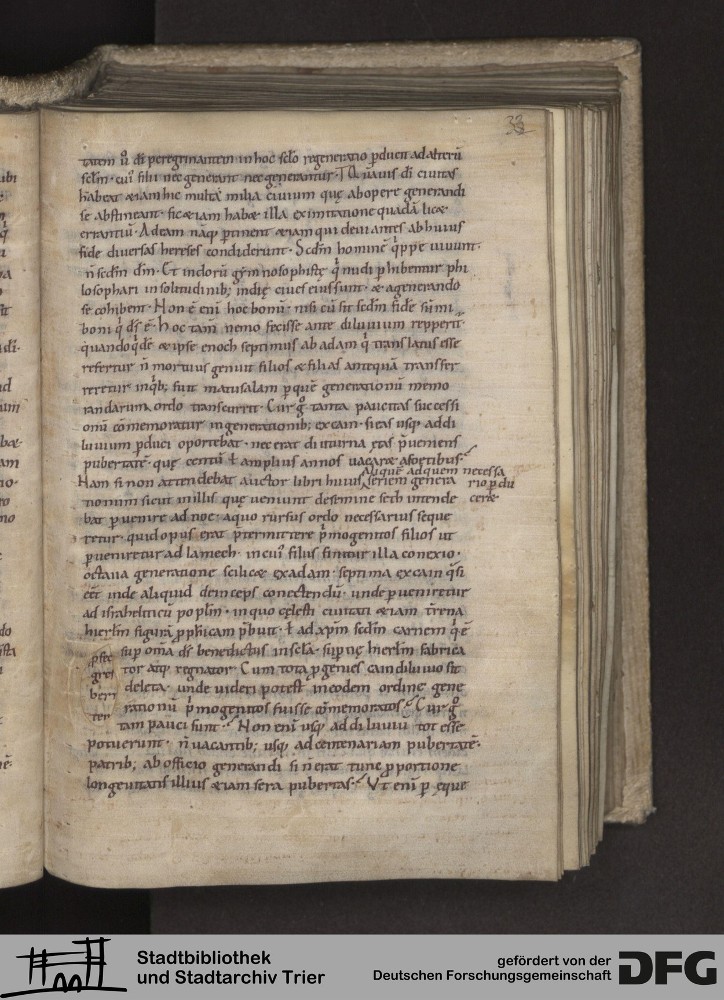 33
tatem ů dī peregrinantem in hoc sclo regeneratio pducit ad alterū
sclm · cui' filii nec generant nec generantur · TQ uavis dī civitas
habeat & iam hic multa milia civium quę ab opere generandi
se abstineant · sic & iam habet illa ex imitatione quadā lic&
errantiū · Ad eam nāq; ptinent & iam qui deviantes ab huius
fide diversas hereses condiderunt · Scdm hominē q'ppe vivunt ·
n̄ scdm dm̄ · Et indorū gymnosophistę q' nudi phibentur phi
losophari in solitudinib; indię cives eius sunt · & a generando
se cohibent · Non ē enī hoc bonū · nisi cū fit scdm fidē sūmi
boni q' ds̄ ē · hoc tam̄ nemo fecisse ante diluvium repperit ·
quandoq'dē & ipse enoch septimus ab adam q' translatus esse
refertur n̄ mortuus genuit filios & filias antequā transfer
retur inq'b; fuit matusalam p quē generationū memo
randarum ordo transcurrit · Cur g° tanta paucitas successi
onū cōmemoratur in generationib; ex cain · si eas usq; ad di
luvium pduci oportebat · nec erat diuturna ętas pveniens
pubertatē · quę centū ł amplius annos vacar& a foetibus
Nam si non attendebat auctor libri huius aliquē ad quem necessa
rio pdu
cer& seriem genera
tionum sicut in illis quę veniunt de semine seth intende
bat pvenire ad noe · a quo rursus ordo necessarius seque
retur · quid opus erat ptermittere pmogenitos filios ut
pveniretur ad lamech · in cui' filiis finitur illa conexio ·
octava generatione scilic& ex adam · septima ex cain q'si
eēt inde aliquid deinceps conectendū · unde pveniretur
ad israheliticū poplm · in quo cęlesti civitati & iam trena
hierlm figurā pph&icam pbuit · ł ad xpm̄ scdm carnem q' ē
sup om̄a ds̄ benedictus in scla · supnę hierlm fabrica
tor atq; regnator · Cum tota pgenies cain diluvio sit
deleta · unde videri potest in eodem ordine gene
rationū pmogenitos fuisse cōmemoratos · Cur g°
tam pauci sunt · Non enī usq; ad diluviū tot esse
potuerunt · n̄ vacantib; usq; ad centenariam pubertatē ·
patrib; ab officio generandi si n̄ erat tunc pportione
longevitatis illius & iam sera pubertas · Ut enī peque
Stadtbibliothek
und Stadtarchiv Trier
gefördert von der
Deutschen Forschungsgemeinschaft
DFG